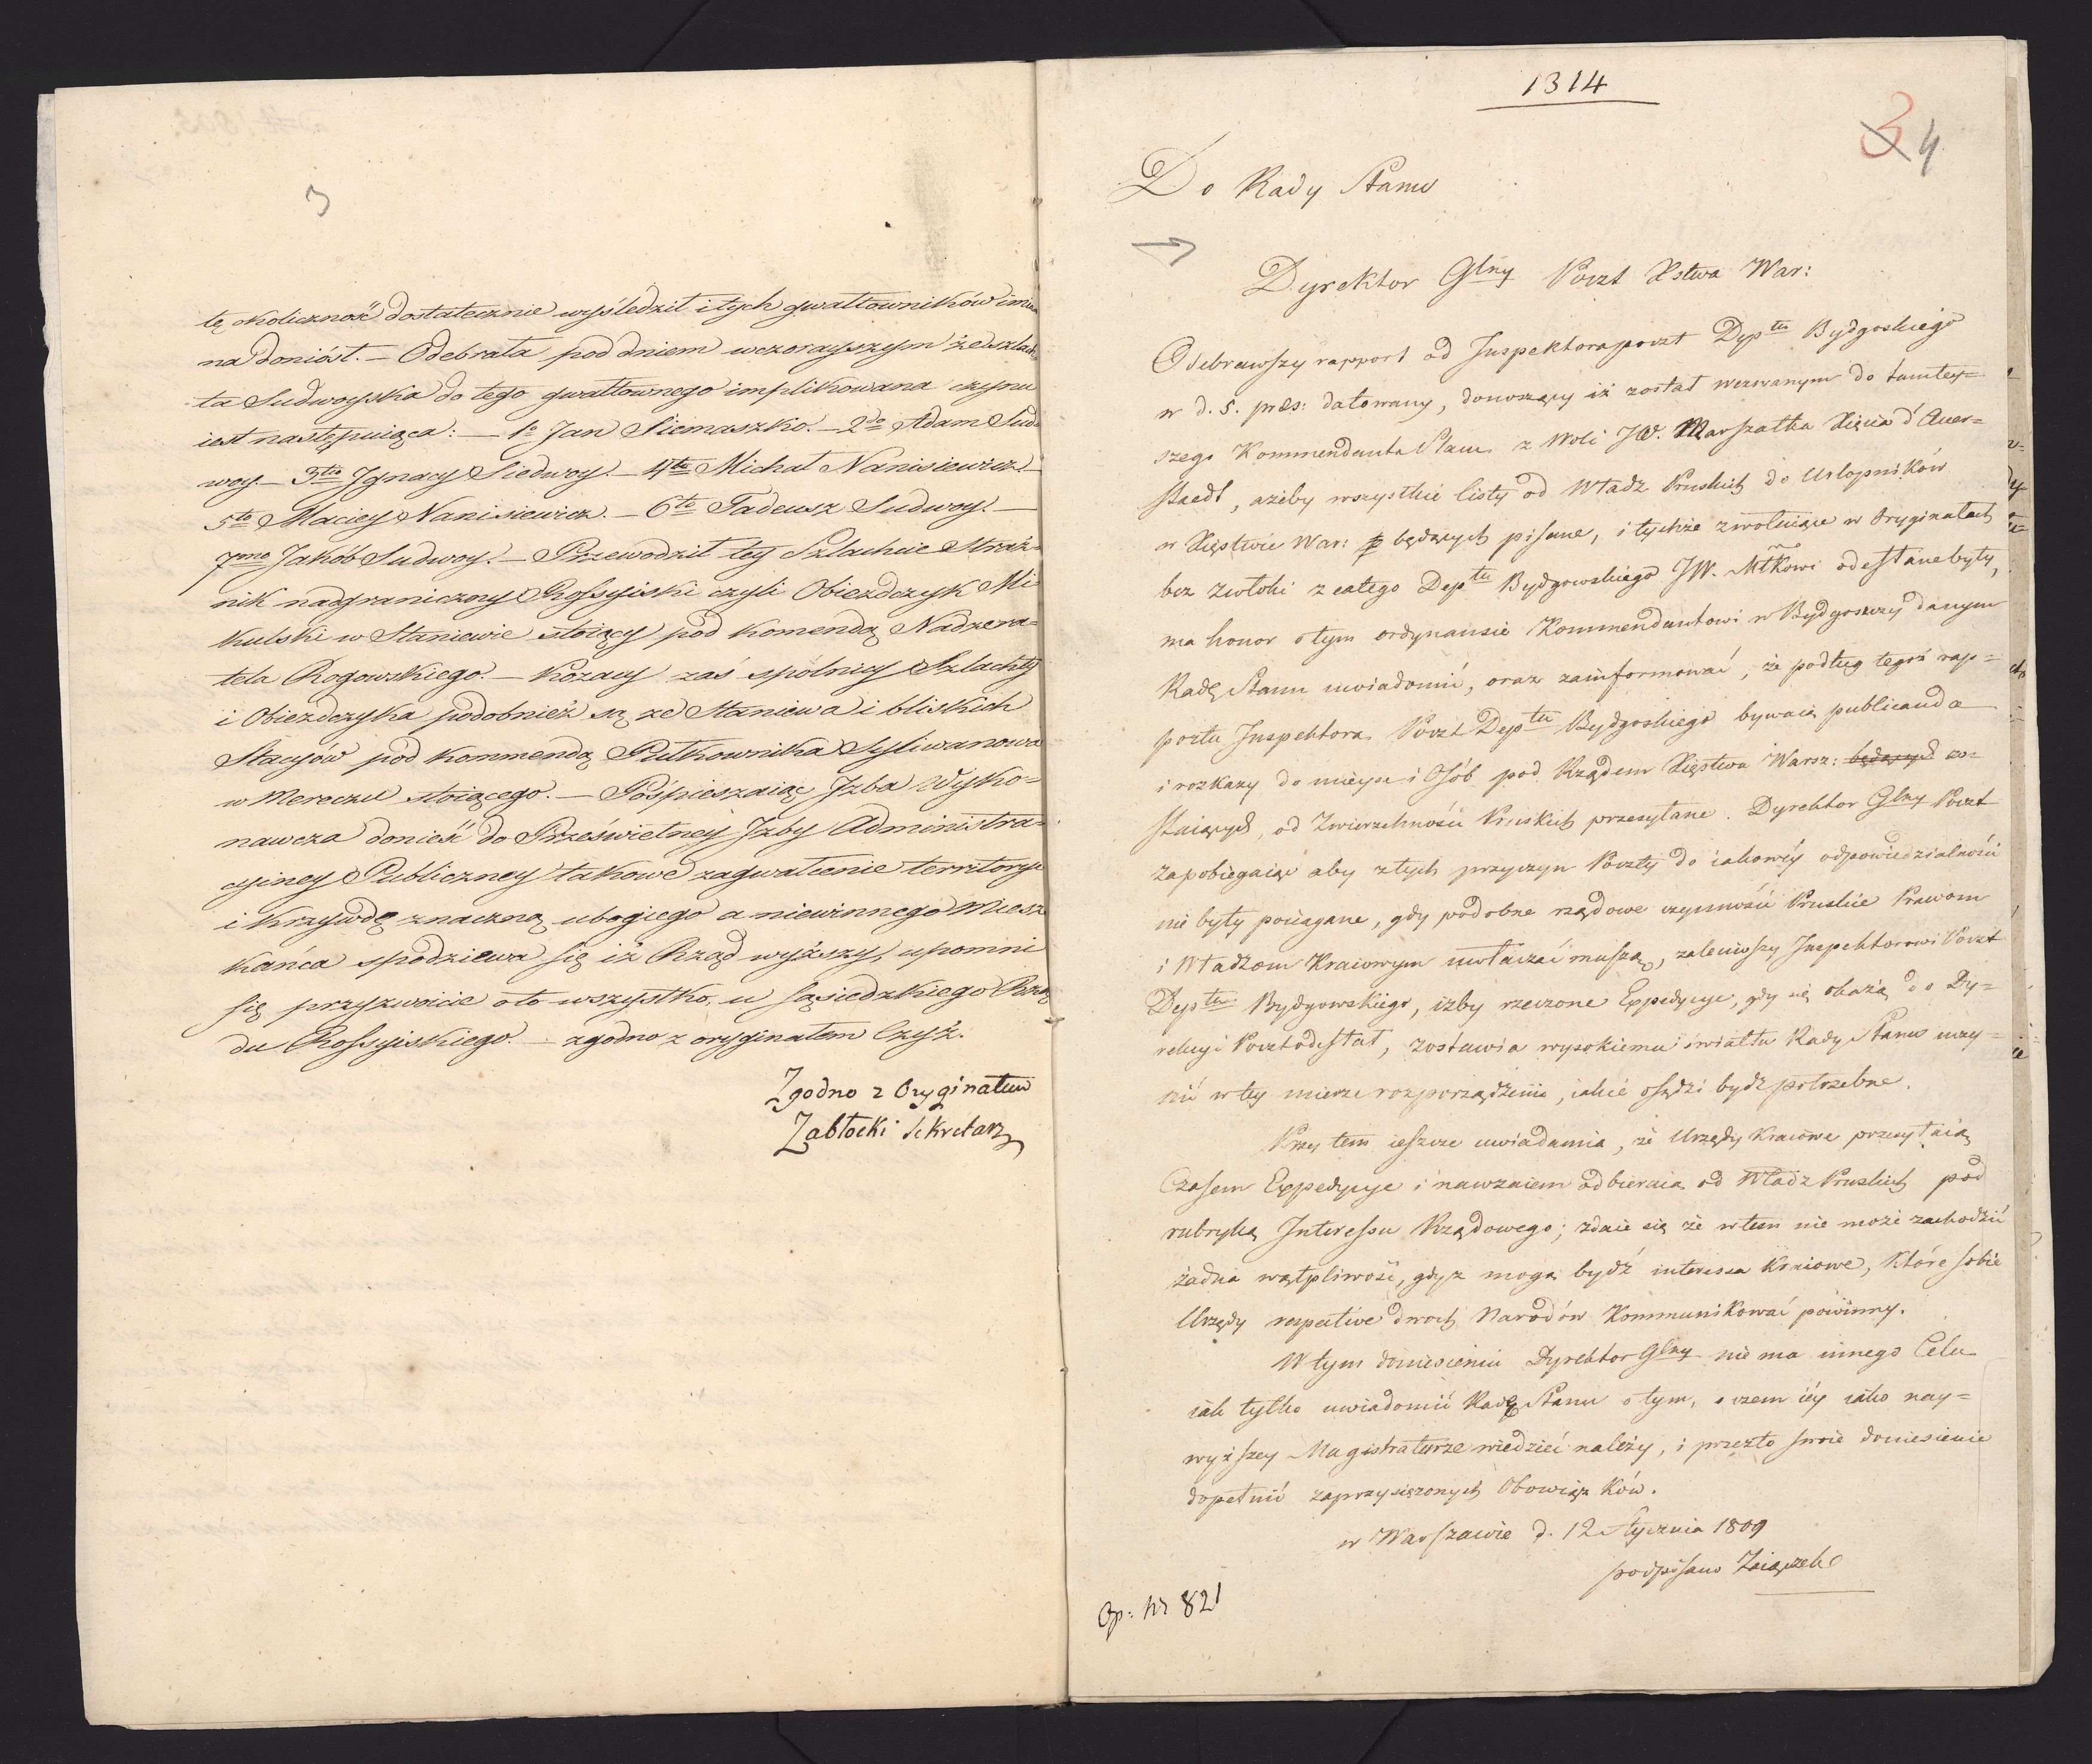 3
tę okoliczność dostatecznie wyśledził i tych gwałtowników imio
na doniósł. – Odebrała pod dniem wczorayszym że szlach
ta Sudwoyska do tego gwałtownego implikowana czynu
iest następuiąca: – 1o Jan Siemaszko. – 2do Adam Sud
woy. – 3tio Jgnacy Siedwoy. – 4to Michał Nanisiewicz. –
5to Maciey Nanisiewicz. – 6to Tadeusz Sudwoy. –
7mo Jakób Sudwoy. – Przewodził tey Szlachcie Straż=
nik nadgraniczny Rossyiski czyli Obiezdczyk Mi
kulski w Staniewie stoiący pod komendą Nadzera=
tela Rogowskiego. – Kozacy zaś spólnicy Szlachty
i Obiezdczyka podobnież są ze Staniewa i bliskich
Stacyów pod kommendą Pułkownika Syliwanowa
w Mereczu stoiącego. – Pośpieszaiąc Jzba Wyko=
nawcza donieść do Prześwietney Jzby Administra=
cyiney Publiczney takowe zagwałcenie territoryi
i krzywdę znaczną ubogiego a niewinnego miesz
kańca spodziewa się iż Rząd wyższy upomni
się przyzwoicie o to wszystko, u sąsiedzkiego Rzą
du Rossyiskiego. – zgodno z oryginałem Czyż.
Zgodno z Oryginałem
Zabłocki Sekretarz
1314
3 4
Do Rady Stanu
Dyrektor Glny Poczt Xstwa War:
Odebrawszy rapport od Inspektora poczt Dept̃u Bydgoskiego
w d. 5. præs: datowany, donoszący iż został wezwanym do tamtey=
szego Kommendanta Placu z Woli JW. Marszałka Xięcia d'Auer=
staedt, ażeby wszystkie listy od Władz Pruskich do Urlopników
w Xięstwie War: będących pisane, i tychże zwolniaiące w Oryginałach
bez zwłoki z całego Deptu Bydgowskiego JW. Młkowi odesłane były,
ma honor o tym ordynansie Kommendantowi w Bydgoszczy danym
Radę Stanu uwiadomić, oraz zainformować, że podług tegoż rap=
portu Inspektora Poczt Deptu Bydgoskiego bywaią publicanda
i rozkazy do mieysc i Osób pod Rządem Xięstwa Warsz: będących zo=
staiących, od Zwierzchności Pruskich przesyłane. Dyrektor Glny Poczt
zapobiegaiąc aby z tych przyczyn Poczty do iakowéy odpowiedzialności
nie były pociągane, gdy podobne rządowe czynności Pruskie Prawom
i Władzom Kraiowym uwłaczać muszą, zaleciwszy Inspektorowi Poczt
Deptu Bydgowskiego, izby rzeczone Expedycye, gdy się okażą do Dy=
rekcyi Poczt odesłał, zostawia wysokiemu światłu Rady Stanu uczy=
nić w tey mierze rozporządzenie, iakie osądzi bydź potrzebne.
Przy tem ieszcze uwiadamia, że Urzędy Kraiowe przesyłaią
Czasem Expedycye i nawzaiem odbieraią od Władz Pruskich pod
rubryką Interessu Rządowego; zdaie się że w tem nie może zachodzić
żadna wątpliwość, gdyż mogą bydź interessa Kraiowe, które sobie
Urzędy respective dwoch Narodów Kommunikować powinny.
W tym doniesieniu Dyrektor Glny nie ma innego Celu
iak tylko uwiadomić Radę Stanu o tym, o czem iéy iako nay=
wyższey Magistraturze wiedzieć należy, i przez to swoie doniesienie
dopełnić zaprzysiężonych Obowiązków.
w Warszawie d. 12 Stycznia 1809
podpisano Zaiączek
Op: Nr 821